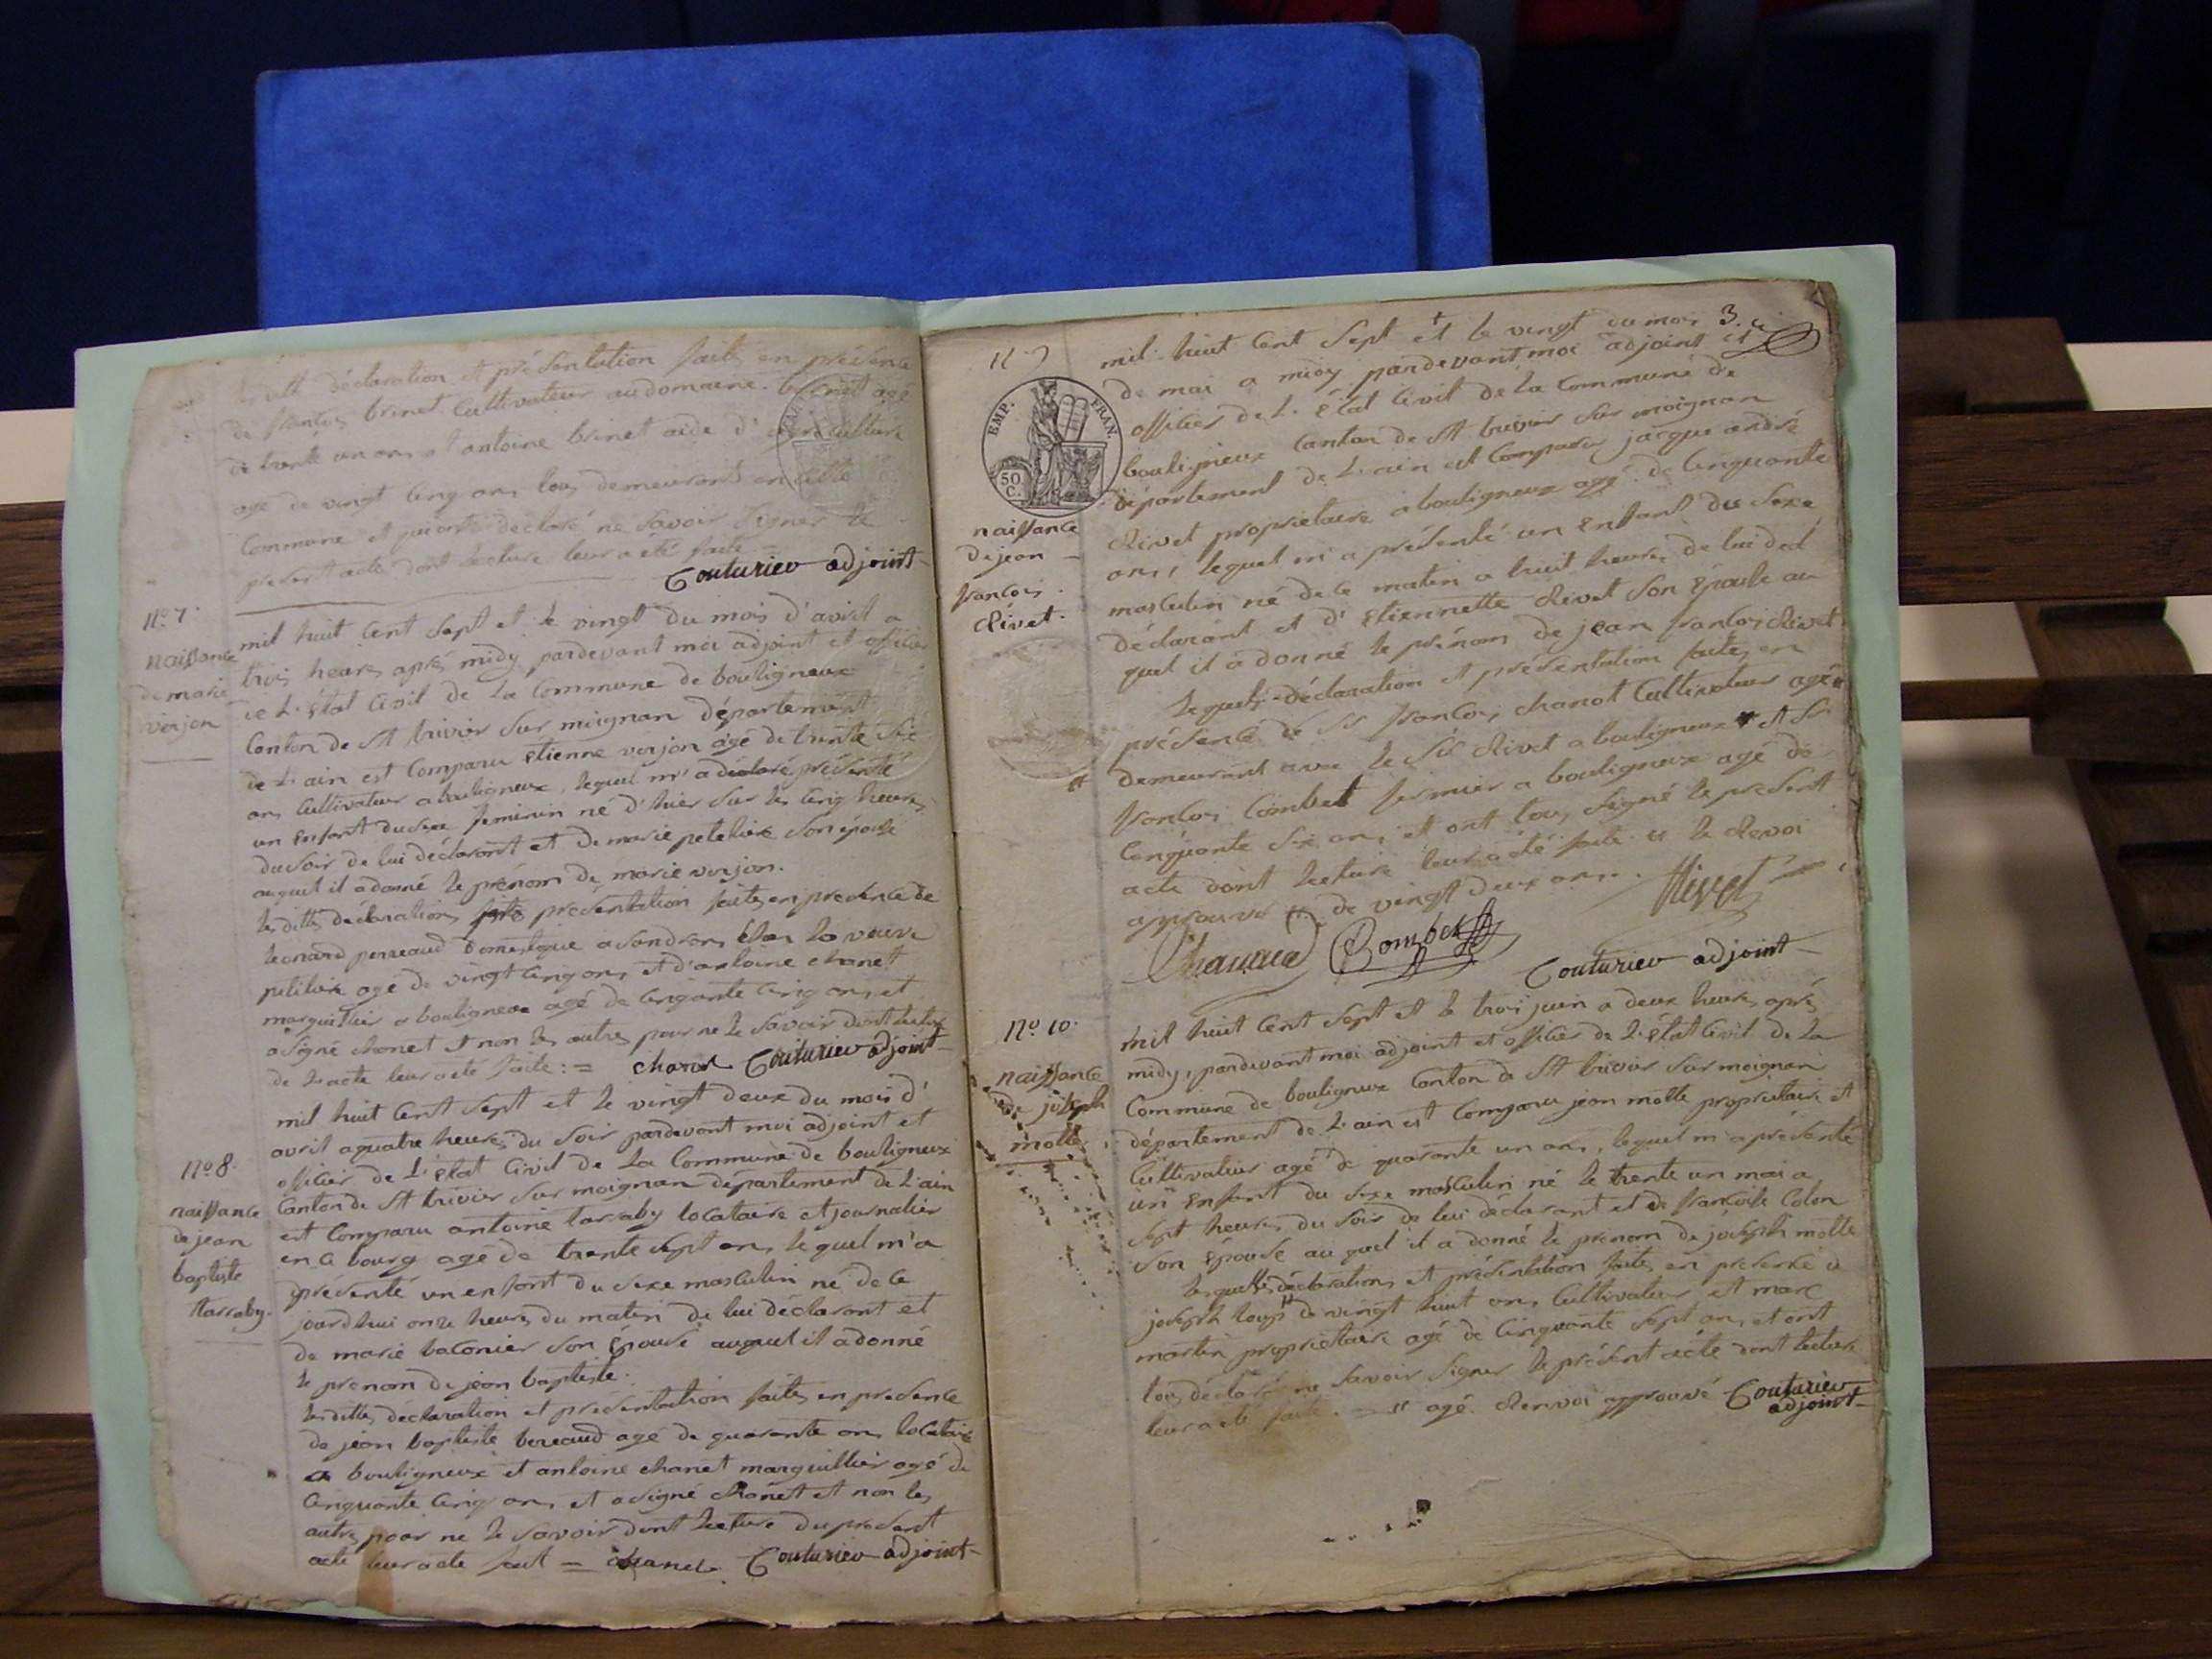 déclaration et présentation faites en présence
de françois brinet Cultivateur au domaine agé
de trente un ans et antoine brinet aide d'agriculture
agé de vingt cinq ans tous demeurants en cette
Commune et qui ont déclaré ne savoir signer le
present acte dont lecture leur a été faite =
Couturier adjoint
No. 7.
naissance
de marie
vorjon
mil huit cent sept et le vingt du mois d'avril a
trois heures aprés midy pardevant moi adjoint et officier
de L'état Civil de La Commune de bouligneux
Canton de St trivier sur moignan département
de L'ain est Comparu étienne vorjon agé de trente six
ans Cultivateur a bouligneux, lequel m'a déclaré présenté
un enfant du sexe feminin né d'hier sur les cinq heures
du soir de lui déclarant et de marie son épouse
auquel il a donné le prénom de marie vorjon.
les dittes déclaration présentation faites en presence de
leonard perreaud domestique a sandrans chés la veuve
agé de vingt cinq ans et d'antoine chanet
marguillier a bouligneux agé de cinqante cinq ans et
a signé chanet et non les autres pour ne le savoir dont lecture
de l'acte leur a été faite : = chanet Couturier adjoint
No 8.
naissance
de jean
baptiste
tarraby.
mil huit cent sept et le vingt deux du mois d'
avril a quatre heures du soir pardevant moi adjoint et
officier de L'état Civil de La Commune de bouligneux
Canton de St trivier sur moignan département de L'ain
est Comparu antoine tarraby locataire et journalier
en ce bourg agé de trente sept ans lequel m'a
présenté un enfant du sexe masculin né de ce
jourd'hui onze heures du matin de lui déclarant et
de marie baconier son épouse auquel il a donné
le prenom de jean baptiste.
les dittes déclaration et présentation faites en presence
de jean baptiste bereaud agé de quarante ans locataire
a bouligneux et antoine chanet marguillier agé de
cinquante cinq ans et a signé chanet et non les
autres pour ne le savoir dont lecture du present
acte leur a été fait = chanet Couturier adjoint
3.
EMP. FRAN.
50 C.
naissance
de jean
françois
Rivet.
mil huit cent sept et le vingt du mois
de mai a midy pardevant moi adjoint et
officier de L'état Civil de la Commune de
bouligneux Canton de St trivier sur moignan
département de L'ain est Comparu jacque andré
Rivet propriétaire a bouligneux agé de cinquante
ans, lequel m'a présenté un enfant du sexe
masculin né de ce matin a huit heures de lui dit
déclarant et d'etiennette Rivet son épouse au
quel il a donné le prénom de jean françois Rivet
lesquels déclaration et présentation faites en
présence de Sr françois chanot Cultivateur agé
demeurant avec le Sir Rivet a bouligneux et Sr
françois Combet fermier a bouligneux agé de
cinquante six ans et ont tous signé le present
acte dont lecture leur a été faite le Renvoi
approuvé de vingt deux ans.
Rivet
Combet
Couturier adjoint
No 10.
naissance
de joseph
motte
mil huit cent sept et le trois juin a deux heures aprés
midy, pardevant moi adjoint et officier de L'état Civil de La
Commune de bouligneux Canton de St trivier sur moignan
département de L'ain est Comparu jean motte propriétaire et
Cultivateur agé de quarante un ans, lequel m'a présenté
un enfant du sexe masculin né le trente un mai a
sept heures du soir de lui déclarant et de françoise Colon
son épouse au quel il a donné le prenom de joseph motte
lesquelles déclaration et présentation faites en presence de
joseph loup de vingt huit ans Cultivateur et marc
martin propriétaire agé de cinquante sept ans et ont
tous déclaré ne savoir signer le présent acte dont lecture
leur a été faite. = agé. Renvoi approuvé Couturier
adjoint